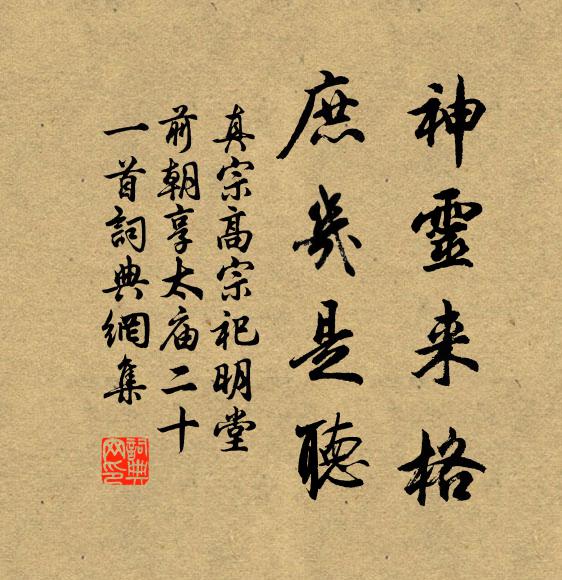 神靈来格
庶幾是聽
真宗高宗祀明堂
前朝享太庙二十
一首詞典網集
詞典
网印